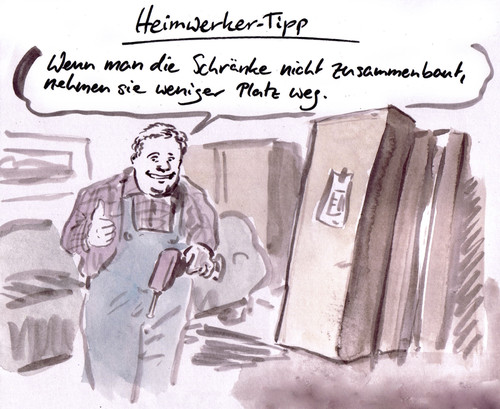 Heimwerker-Tipp
Wenn man die Schränke nicht zusammenbaut,
nehmen sie weniger Platz weg.